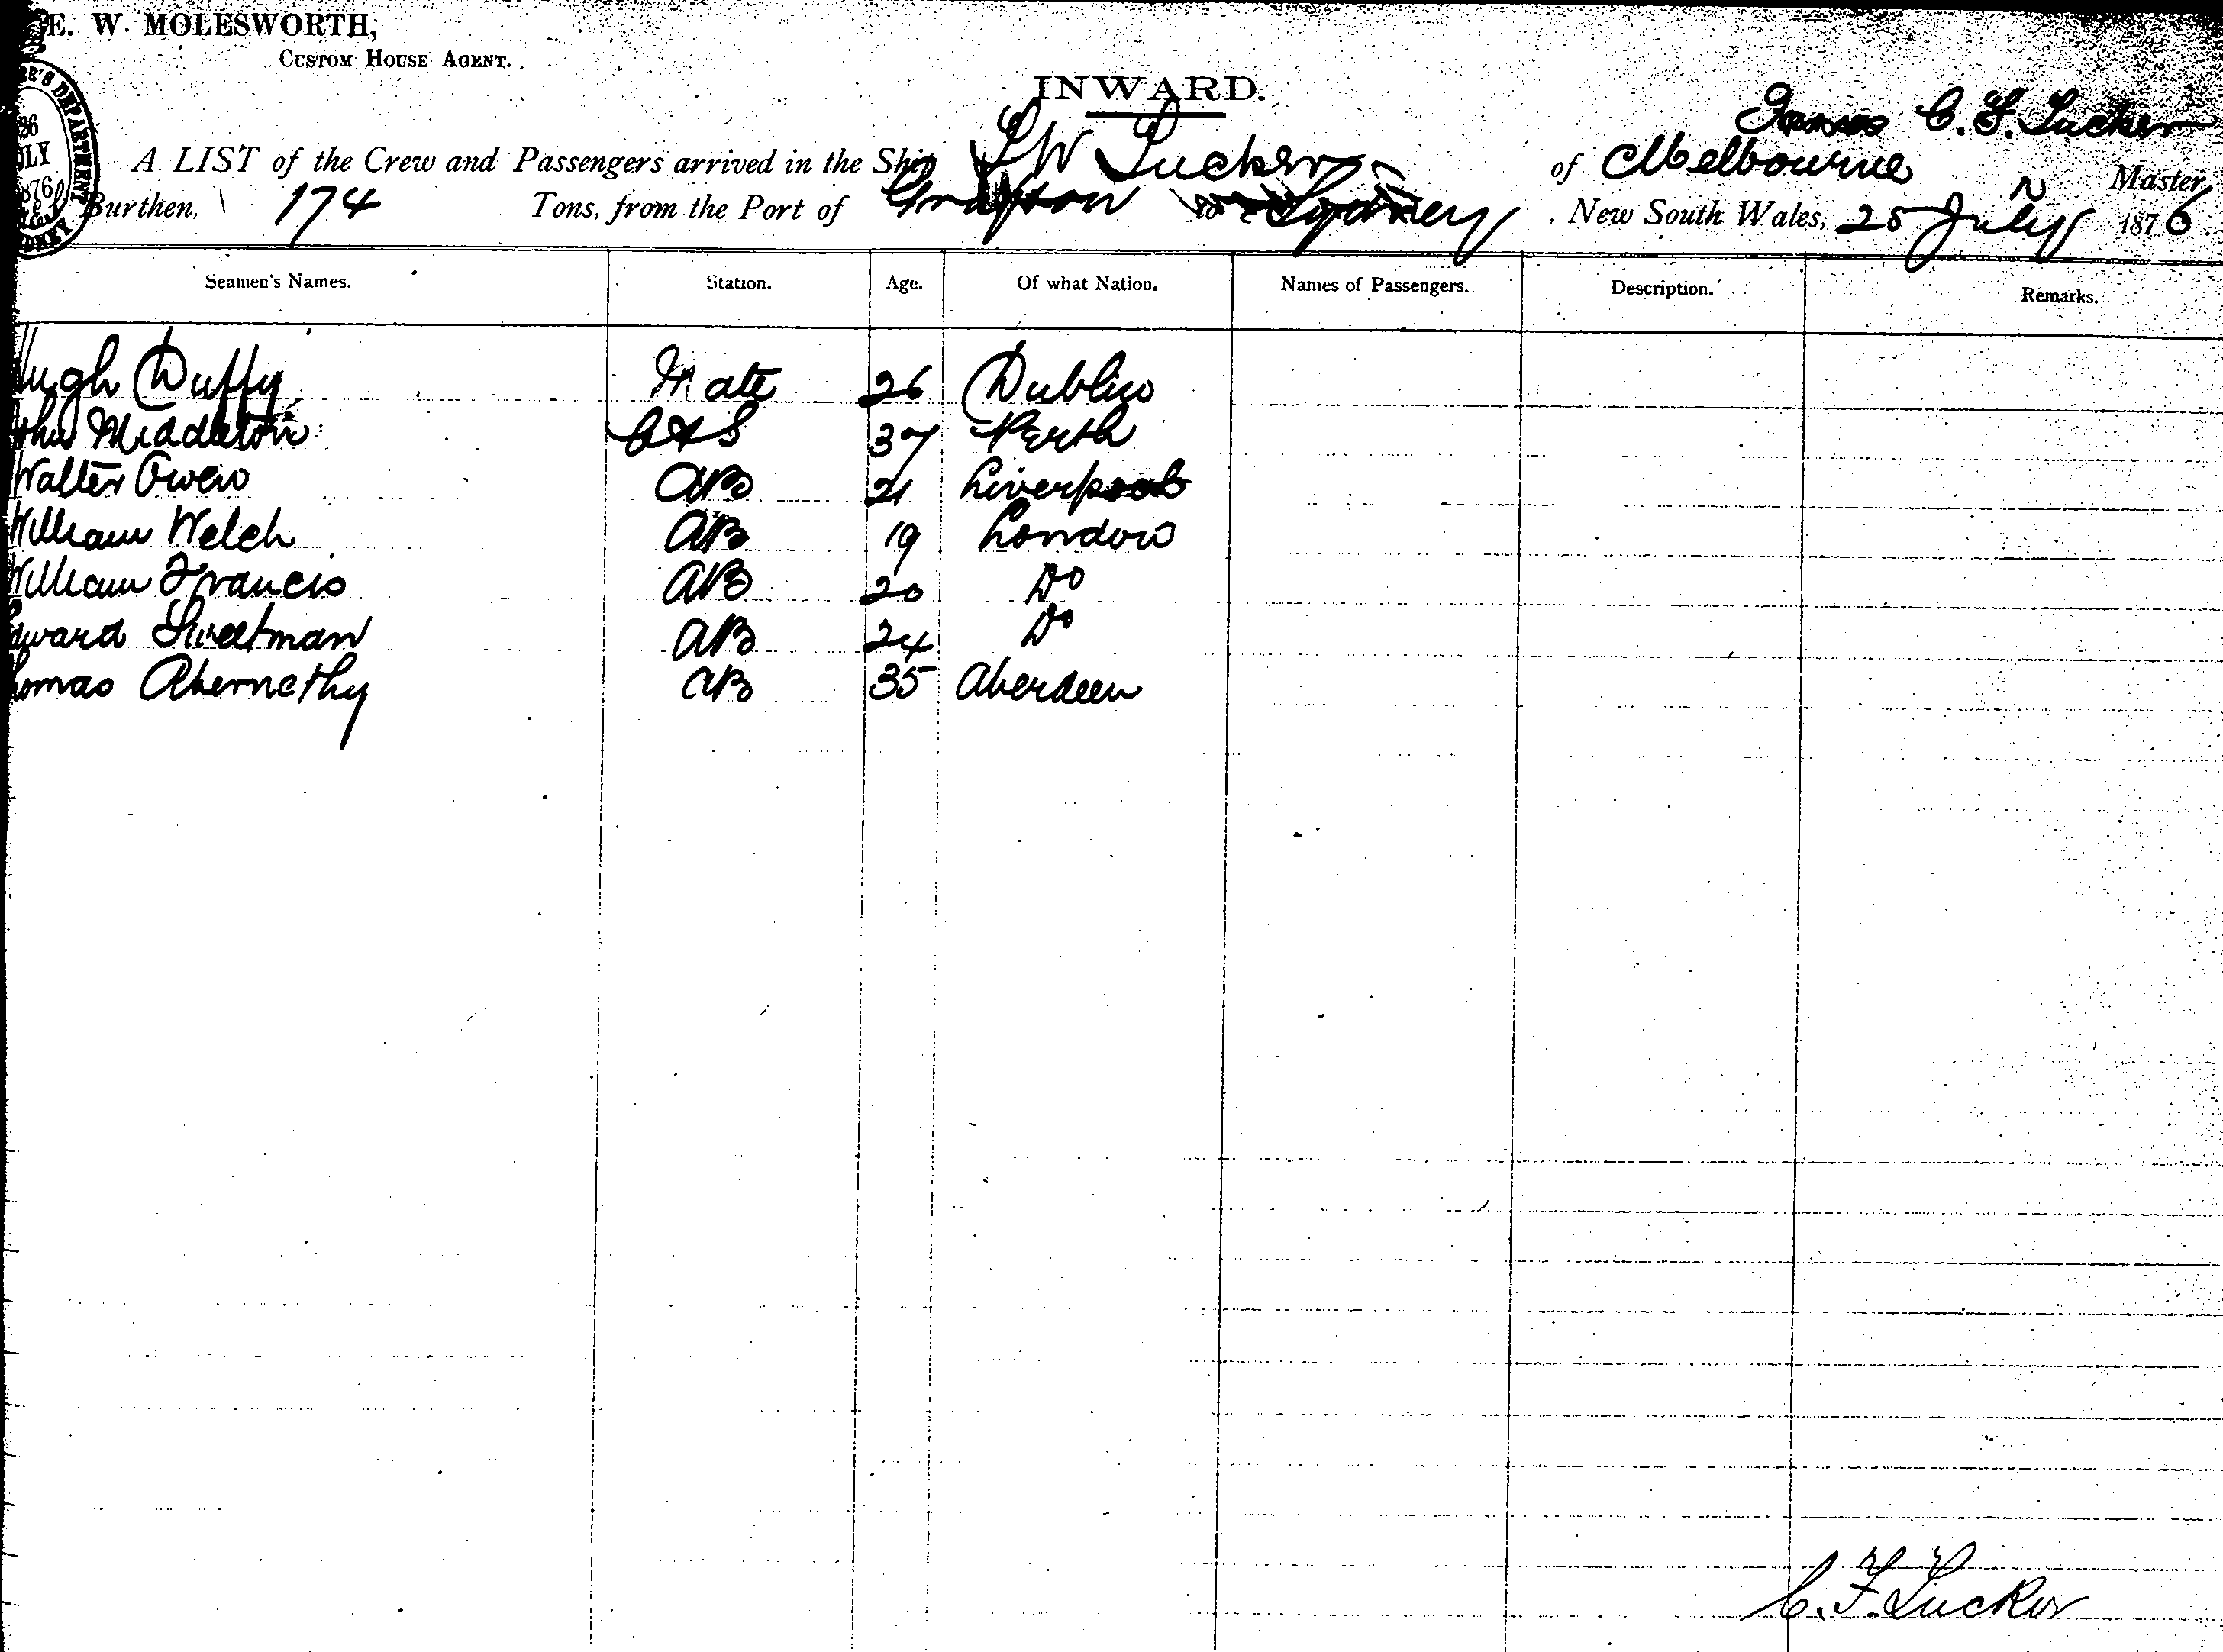 E. W. MOLESWORTH,
CUSTOM HOUSE AGENT.
INWARD.
C. F. Lucker
A LIST of the Crew and Passengers arrived in the Ship Lucker of Melbourne Master,
Burthen, 174 Tons, from the Port of Grafton to Sydney, New South Wales, 25 July 1876
DEPARTMENT
26
JULY
1876
SYDNEY
Seamen's Names. Station. Age. Of what Nation. Names of Passengers. Description. Remarks.
Hugh Duffy Mate 26 Dublin
John Middleton C & S 37 Perth
Walter Owen AB 21 Liverpool
William Welch AB 19 London
William Francis AB 20 Do
Edward Sweetman AB 24 Do
Thomas Abernethy AB 35 Aberdeen
C. F. Lucker